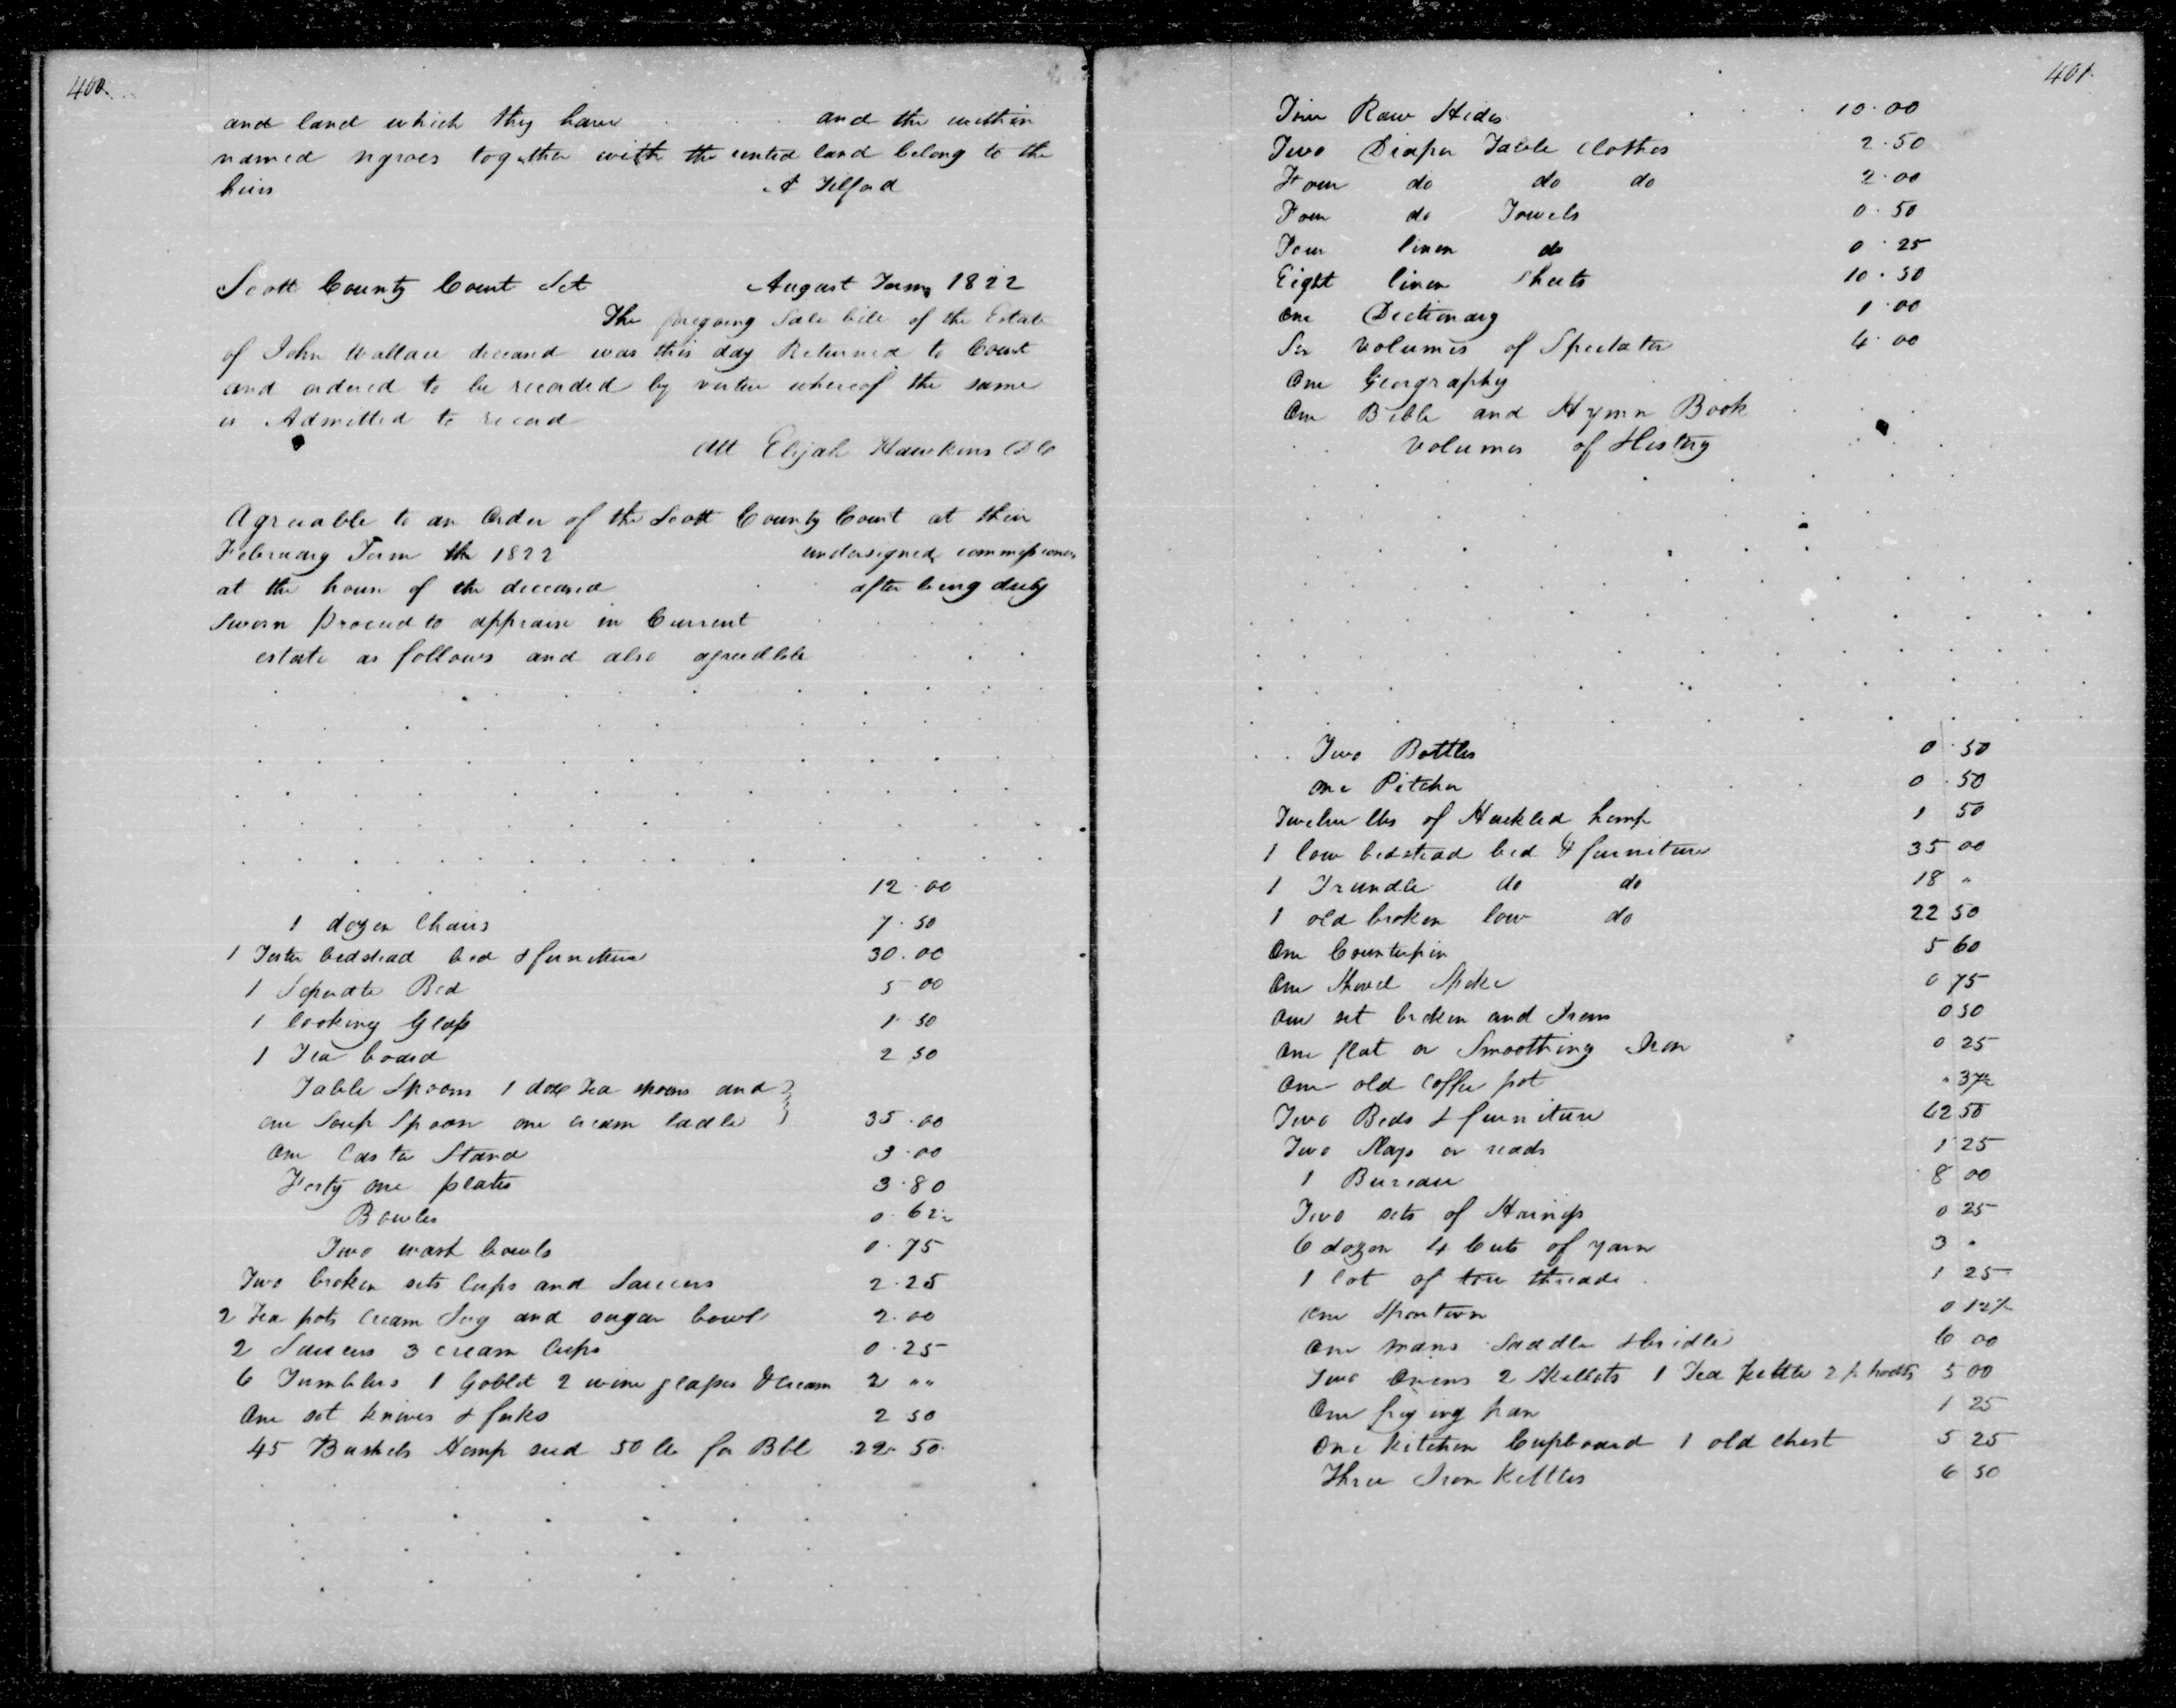 400.
and land which they have and the within
named negroes together with the rented land belong to the
heirs A Telford
Scott County Court Sct August Term 1822
The foregoing Sale bill of the Estate
of John Wallace deceasd was this day Returned to Court
and ordered to be recorded by vertue whereof the same
is Admitted to record
Att Elijah Hawkins DC
Agreeable to an Order of the Scott County Court at their
February Term the 1822 undersigned commissioners
at the house of the deceased after being duly
Sworn Proceed to appraise in Current
estate as follows and also agreeable
12.00
1 dozen Chairs 7.50
1 Tester bedstead bed & furniture 30.00
1 Seperate Bed 5 00
1 looking Glass 1 50
1 Tea board 2 50
Table Spoons 1 doz Tea spoons and
one Soup Spoon one cream ladle 35.00
One Castor Stand 3.00
Forty one plates 3.80
Bowles 0.62½
Two wash bowls 0.75
Two broken sets Cups and Saucers 2.25
2 Tea pots Cream Jug and sugar bowl 2.00
2 Saucers 3 cream Cups 0.25
6 Tumblers 1 Goblet 2 wine glasses & cream 2 ""
One set knives & forks 2 50
45 Bushels Hemp seed 50 for Bbl 22.50
401.
Four Raw Hides 10.00
Two Diaper Table Clothes 2.50
Four do do do 2.00
Four do Towels 0.50
Four linen do 0.25
Eight linen Sheets 10.50
One Dictionary 1.00
Six Volumes of Spectator 4.00
One Geography
One Bible and Hymn Book
Volumes of History
Two Bottles 0.50
One Pitcher 0.50
Twelve lbs of Hackled hemp 1 50
1 low bedstead bed & furniture 35 00
1 Trundle do do 18 "
1 old broken low do 22 50
One Counterpin 5 60
One Shovel 0 75
One set broken and Irons 0 50
One flat or Smoothing Iron 0 25
One old Coffee pot " 37½
Two Beds & furniture 62 50
Two Slays or reads 1 25
1 Bureau 8 00
Two sets of 0 25
6 dozen 4 Cuts of yarn 3 "
1 lot of tow thread 1 25
One 0 12½
One mans Saddle & bridle 6 00
Two Ovens 2 Skellets 1 Tea kettle 2 p hooks 5 00
One frying pan 1 25
One kitchen Cupboard 1 old chest 5 25
Three Iron Kettles 6 50